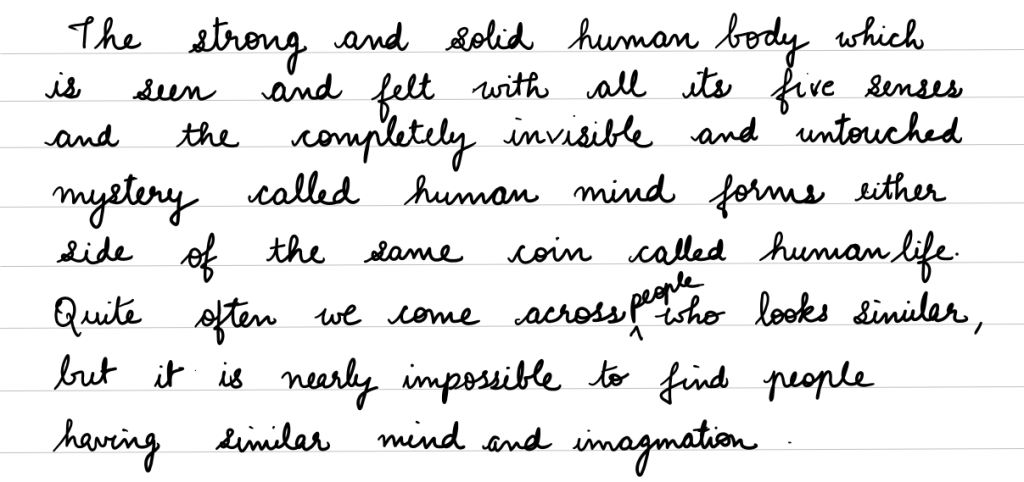 The strong and solid human body which
is seen and felt with all its five senses
and the completely invisible and untouched
mystery called human mind forms either
side of the same coin called human life.
Quite often we come across people who looks similar,
but it is nearly impossible to find people
having similar mind and imagination.